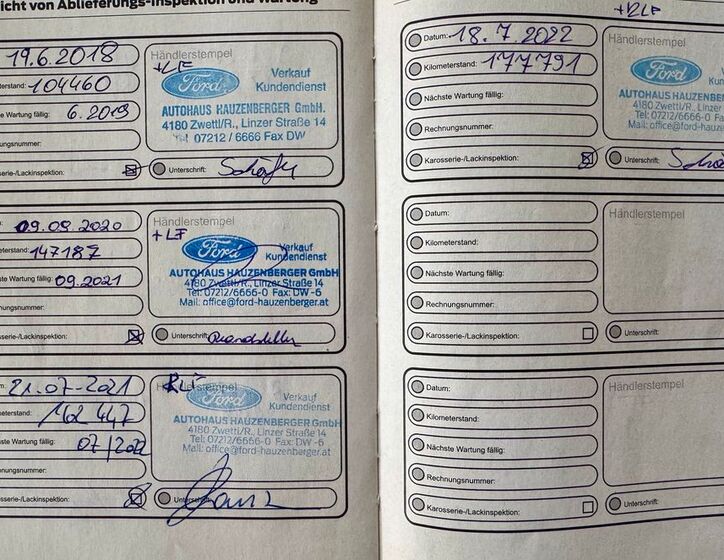 icht von Ablieferungs-Inspektion und Wartung
19.6.2018
erstand: 104460
te Wartung fällig: 6.2019
ungsnummer:
sserie-/Lackinspektion:
Händlerstempel
+LF
Ford
Verkauf
Kundendienst
AUTOHAUS HAUZENBERGER GmbH.
4180 Zwettl/R., Linzer Straße 14
Tel. 07212 / 6666 Fax DW
Unterschrift:
09.09.2020
eterstand: 147187
ste Wartung fällig: 09.2021
nungsnummer:
sserie-/Lackinspektion:
Händlerstempel
+LF
Ford
Verkauf
Kundendienst
AUTOHAUS HAUZENBERGER GmbH
4180 Zwettl/R., Linzer Straße 14
Tel: 07212/6666-0 Fax: DW-6
Mail: office@ford-hauzenberger.at
Unterschrift:
m: 21.07-2021
eterstand: 162 447
ste Wartung fällig: 07/2022
nungsnummer:
sserie-/Lackinspektion:
Händlerstempel
Ford
Verkauf
Kundendienst
AUTOHAUS HAUZENBERGER GmbH
4180 Zwettl/R., Linzer Straße 14
Tel: 07212/6666-0 Fax: DW-6
Mail: office@ford-hauzenberger.at
+RLF
Datum: 18.7.2022
Kilometerstand: 177791
Nächste Wartung fällig:
Rechnungsnummer:
Karosserie-/Lackinspektion:
Händlerstempel
Ford
AUTOHAUS HAUZENBER
4180 Zwettl/R., Linz
Tel: 07212/6666-0
Mail: office@ford-ha
Unterschrift:
Datum:
Kilometerstand:
Nächste Wartung fällig:
Rechnungsnummer:
Karosserie-/Lackinspektion:
Händlerstempel
Unterschrift:
Datum:
Kilometerstand:
Nächste Wartung fällig:
Rechnungsnummer:
Karosserie-/Lackinspektion:
Händlerstempel
Unterschrift: